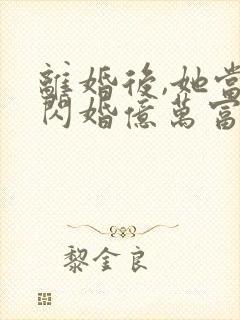 離婚後,她當
閃婚億萬富
黎金良